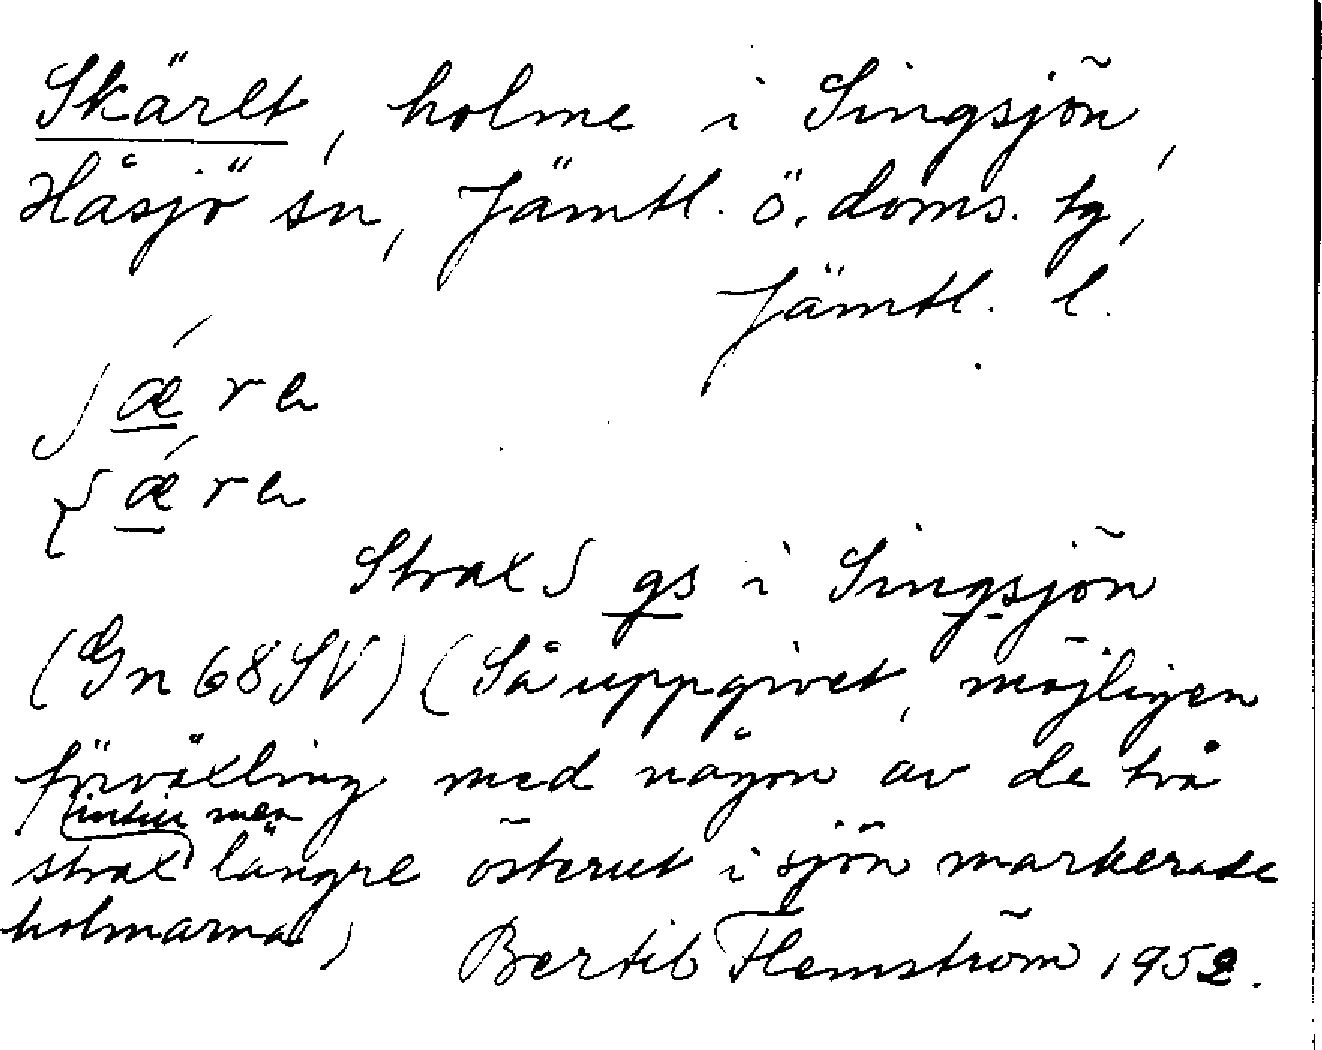 Skärlt, holme i Singsjön,
Håsjö sn, Jämtl. ö. doms. tg,
Jämtl. l.
ʃǽrḷ
ʃǽrḷ
Strax S gs i Singsjön
(Gn 68 SV) (Så uppgivet, möjligen
förväxling med någon av de två
intill men
strax längre österut i sjön markerade
holmarna)
Bertil Flemström 1952.